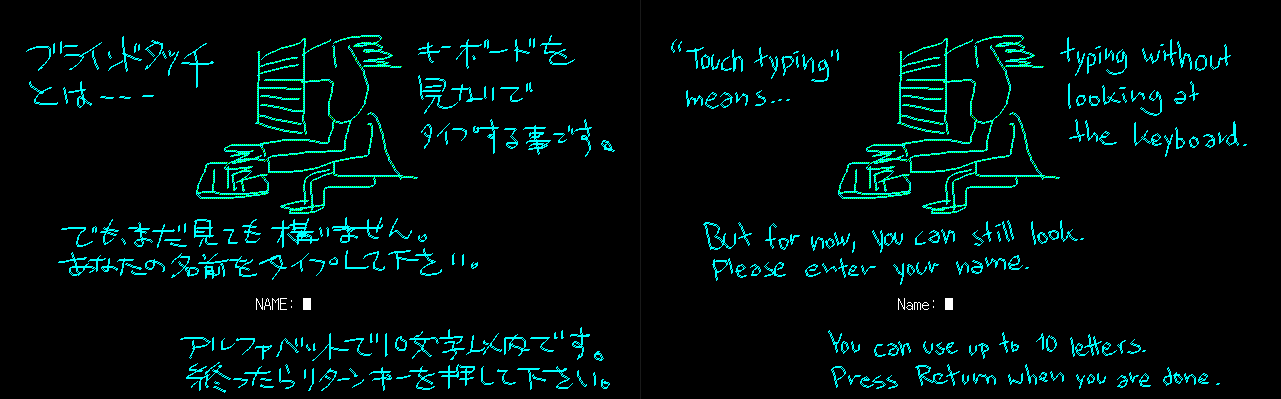 ブラインドタッチ
とは---
キーボードを
見ないで
タイプする事です。
でも、まだ見ても構いません。
あなたの名前をタイプして下さい。
NAME:
アルファベットで10文字以内です。
終ったらリターンキーを押して下さい。
“Touch typing"
means...
typing without
looking at
the keyboard.
But for now, you can still look.
Please enter your name.
Name:
You can use up to 10 letters.
Press Return when you are done.